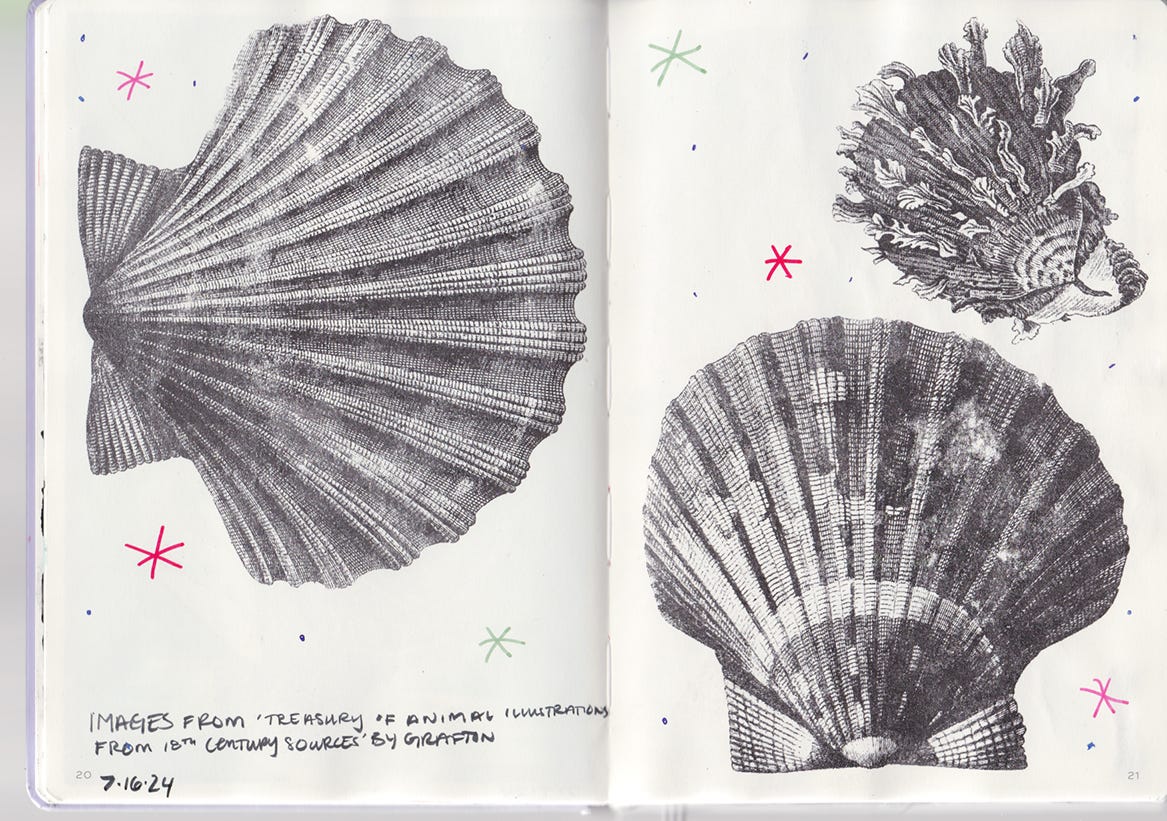 IMAGES FROM 'TREASURY OF ANIMAL ILLUSTRATIONS
FROM 18TH CENTURY SOURCES' BY GRAFTON
20 7.16.24
21